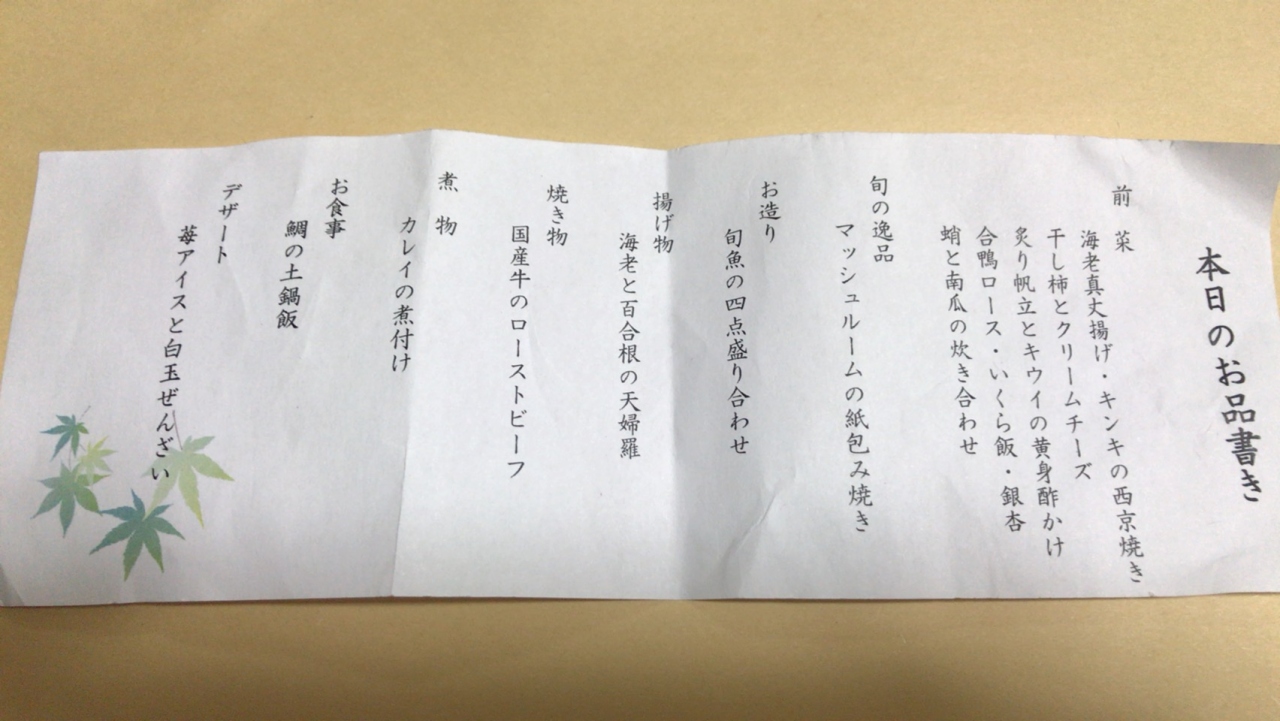 本日のお品書き
前菜
海老真丈揚げ・キンキの西京焼き
干し柿とクリームチーズ
炙り帆立とキウイの黄身酢かけ
合鴨ロース・いくら飯・銀杏
蛸と南瓜の炊き合わせ
旬の逸品
マッシュルームの紙包み焼き
お造り
旬魚の四点盛り合わせ
揚げ物
海老と百合根の天婦羅
焼き物
国産牛のローストビーフ
煮物
カレイの煮付け
お食事
鯛の土鍋飯
デザート
苺アイスと白玉ぜんざい